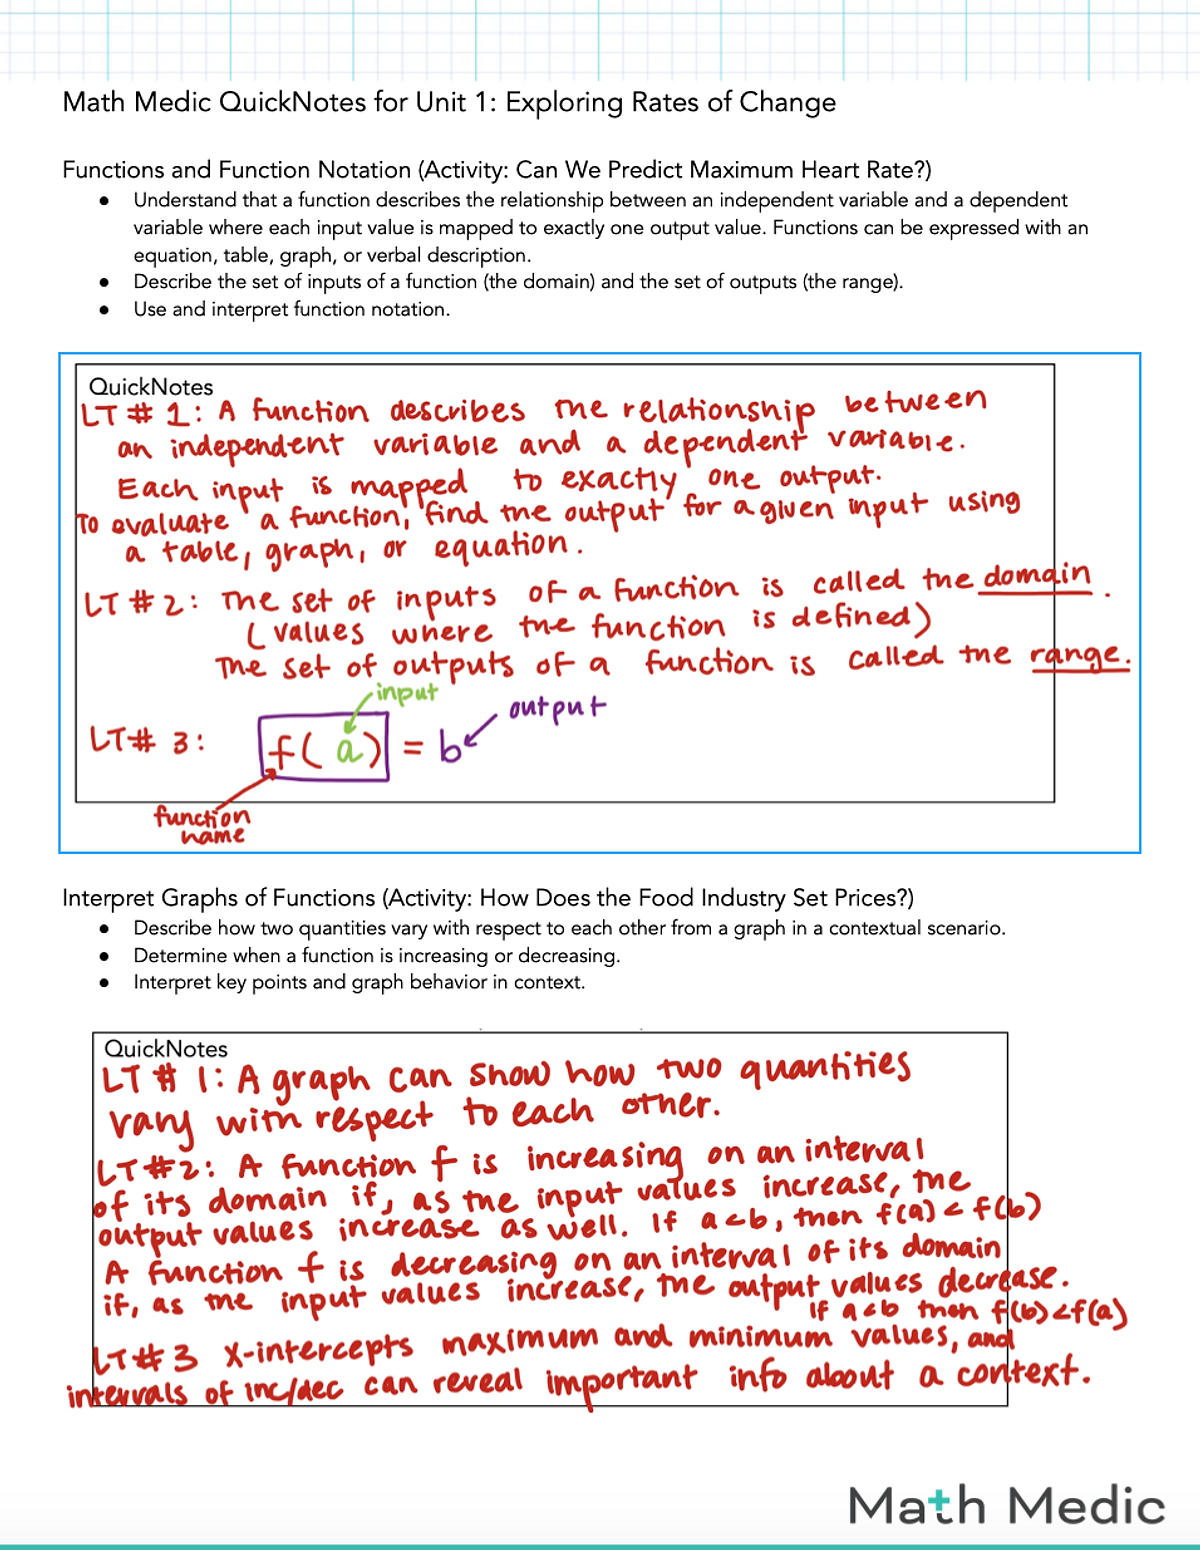 Math Medic QuickNotes for Unit 1: Exploring Rates of Change
Functions and Function Notation (Activity: Can We Predict Maximum Heart Rate?)
● Understand that a function describes the relationship between an independent variable and a dependent
variable where each input value is mapped to exactly one output value. Functions can be expressed with an
equation, table, graph, or verbal description.
● Describe the set of inputs of a function (the domain) and the set of outputs (the range).
● Use and interpret function notation.
QuickNotes
LT # 1: A function describes the relationship between
an independent variable and a dependent variable.
Each input is mapped to exactly one output.
To evaluate a function, find the output for a given input using
a table, graph, or equation.
LT # 2: The set of inputs of a function is called the domain.
(values where the function is defined)
The set of outputs of a function is called the range.
input
output
LT# 3: f(a) = b
function
name
Interpret Graphs of Functions (Activity: How Does the Food Industry Set Prices?)
● Describe how two quantities vary with respect to each other from a graph in a contextual scenario.
● Determine when a function is increasing or decreasing.
● Interpret key points and graph behavior in context.
QuickNotes
LT # 1: A graph can show how two quantities
vary with respect to each other.
LT#2: A function f is increasing on an interval
of its domain if, as the input values increase, the
output values increase as well. If a<b, then f(a) < f(b)
A function f is decreasing on an interval of its domain
if, as the input values increase, the output values decrease.
If a<b then f(b)<f(a)
LT#3 X-intercepts maximum and minimum values, and
intervals of inc/dec can reveal important info about a context.
Math Medic